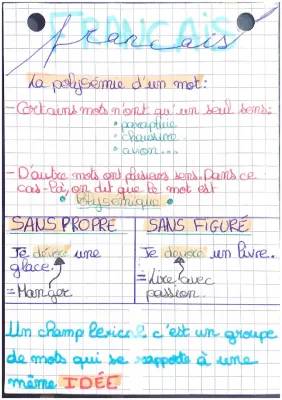 FRANCAIS
francais
La polysémie d'un mot:
- Certains mots n'ont qu'un seul sens:
• parapluie
• chaussure
• avion...
- D'autre mots ont plusieurs sens. Dans ce
cas-là, on dit que le mot est
• Polysémique •
SANS PROPRE
Je dévore une
glace.
= Manger
SANS FIGURÉ
Je dévore un livre.
= Lire avec
passion.
Un champ lexical c'est un groupe
de mots qui se rapporte à une
même IDÉE